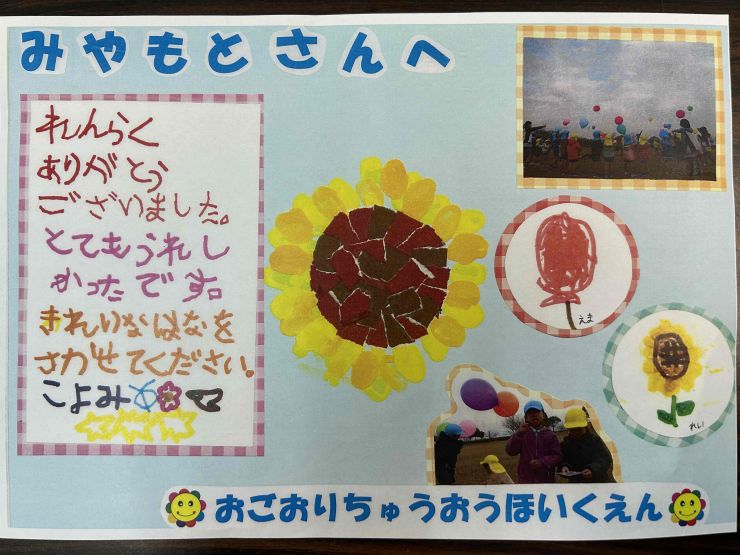 みやもとさんへ
れんらく
ありがとう
ございました。
とてもうれし
かったです。
きれいなはなを
さかせてください。
こよみ
えま
れい
おごおりちゅうおうほいくえん